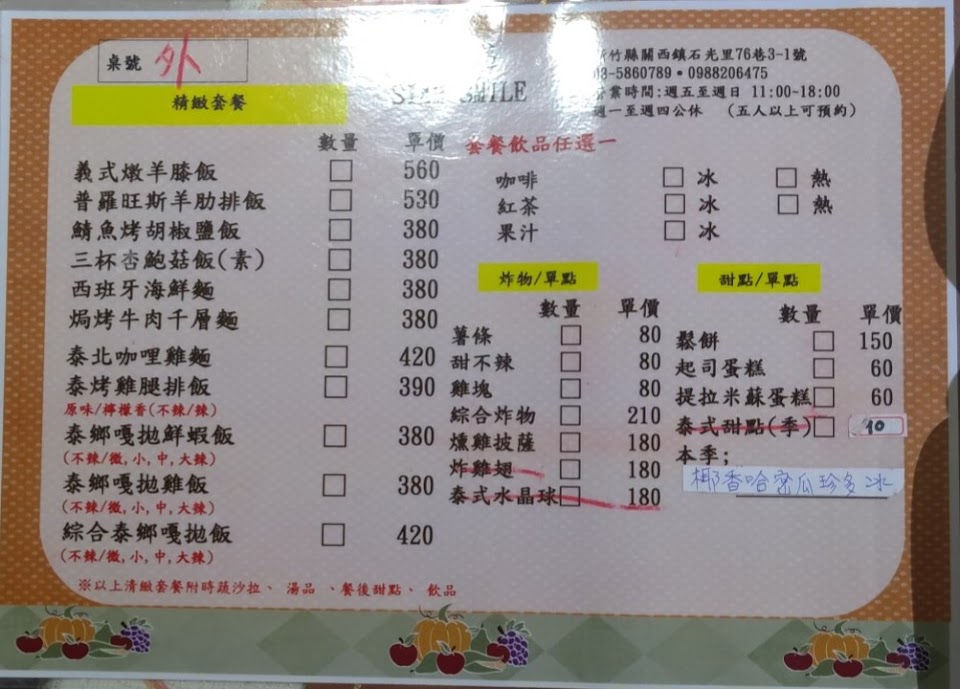 桌號 外
竹縣關西鎮石光里76巷3-1號
03-5860789•0988206475
營業時間:週五至週日 11:00~18:00
週一至週四公休 (五人以上可預約)
SMILE
精緻套餐
數量 單價
義式燉羊膝飯 560
普羅旺斯羊肋排飯 530
鯖魚烤胡椒鹽飯 380
三杯杏鮑菇飯(素) 380
西班牙海鮮麵 380
焗烤牛肉千層麵 380
泰北咖哩雞麵 420
泰烤雞腿排飯 390
原味/檸檬香(不辣/辣)
泰鄉嘎拋鮮蝦飯 380
(不辣/微,小,中,大辣)
泰鄉嘎拋雞飯 380
(不辣/微,小,中,大辣)
綜合泰鄉嘎拋飯 420
(不辣/微,小,中,大辣)
※以上清緻套餐附時蔬沙拉、 湯品 、餐後甜點、 飲品
套餐飲品任選一
咖啡 冰 熱
紅茶 冰 熱
果汁 冰
炸物/單點
數量 單價
薯條 80
甜不辣 80
雞塊 80
綜合炸物 210
燻雞披薩 180
炸雞翅 180
泰式水晶球 180
甜點/單點
數量 單價
鬆餅 150
起司蛋糕 60
提拉米蘇蛋糕 60
泰式甜點(季)
本季;
椰香哈密瓜珍多冰